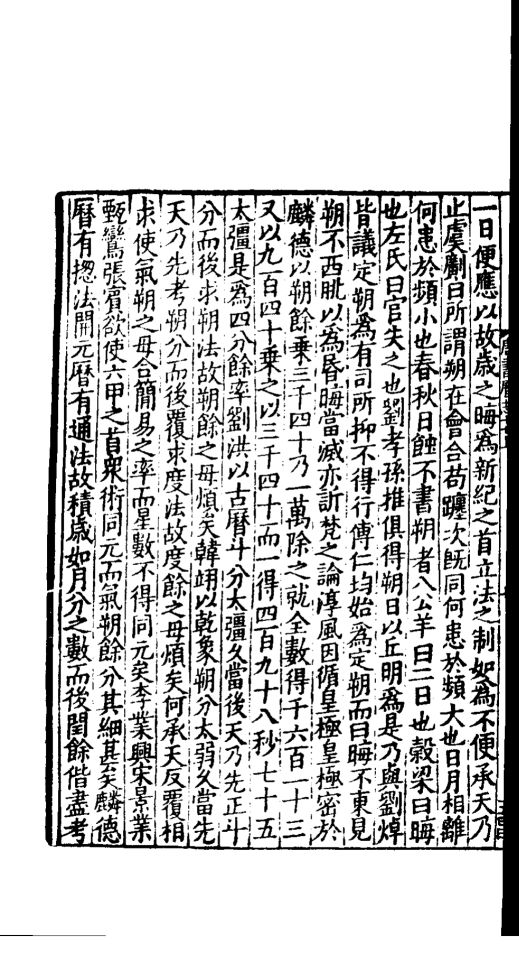 一日便應以故歲之晦爲新紀之首立法之制如爲不便承天乃
止虞𠠎曰所謂朔在會合苟躔次旣同何患於頻大也日月相離
何患於頻小也春秋日蝕不書朔者八公羊曰二日也穀梁曰晦
也左氏曰官失之也劉孝孫推俱得朔日以丘明爲是乃與劉焯
皆議定朔爲有司所抑不得行傅仁均始爲定朔而曰晦不東見
朔不西朓以爲昏晦當滅亦訢梵之論淳風因循皇極皇極密於
麟德以朔餘乘三千四十乃一萬除之就全數得千六百一十三
又以九百四十乘之以三千四十而一得四百九十八秒七十五
太彊是爲四分餘率劉洪以古曆斗分太彊久當後天乃先正斗
分而後求朔法故朔餘之母煩矣韓翊以乾象朔分太弱久當先
天乃先考朔分而後覆求度法故度餘之母煩矣何承天反覆相
求使氣朔之母合簡易之率而星數不得同元矣李業興宋景業
甄鸞張賓欲使六甲之首衆術同元而氣朔餘分其細甚矣麟德
曆有揔法開元曆有通法故積歲如月分之數而後閏餘偕盡考